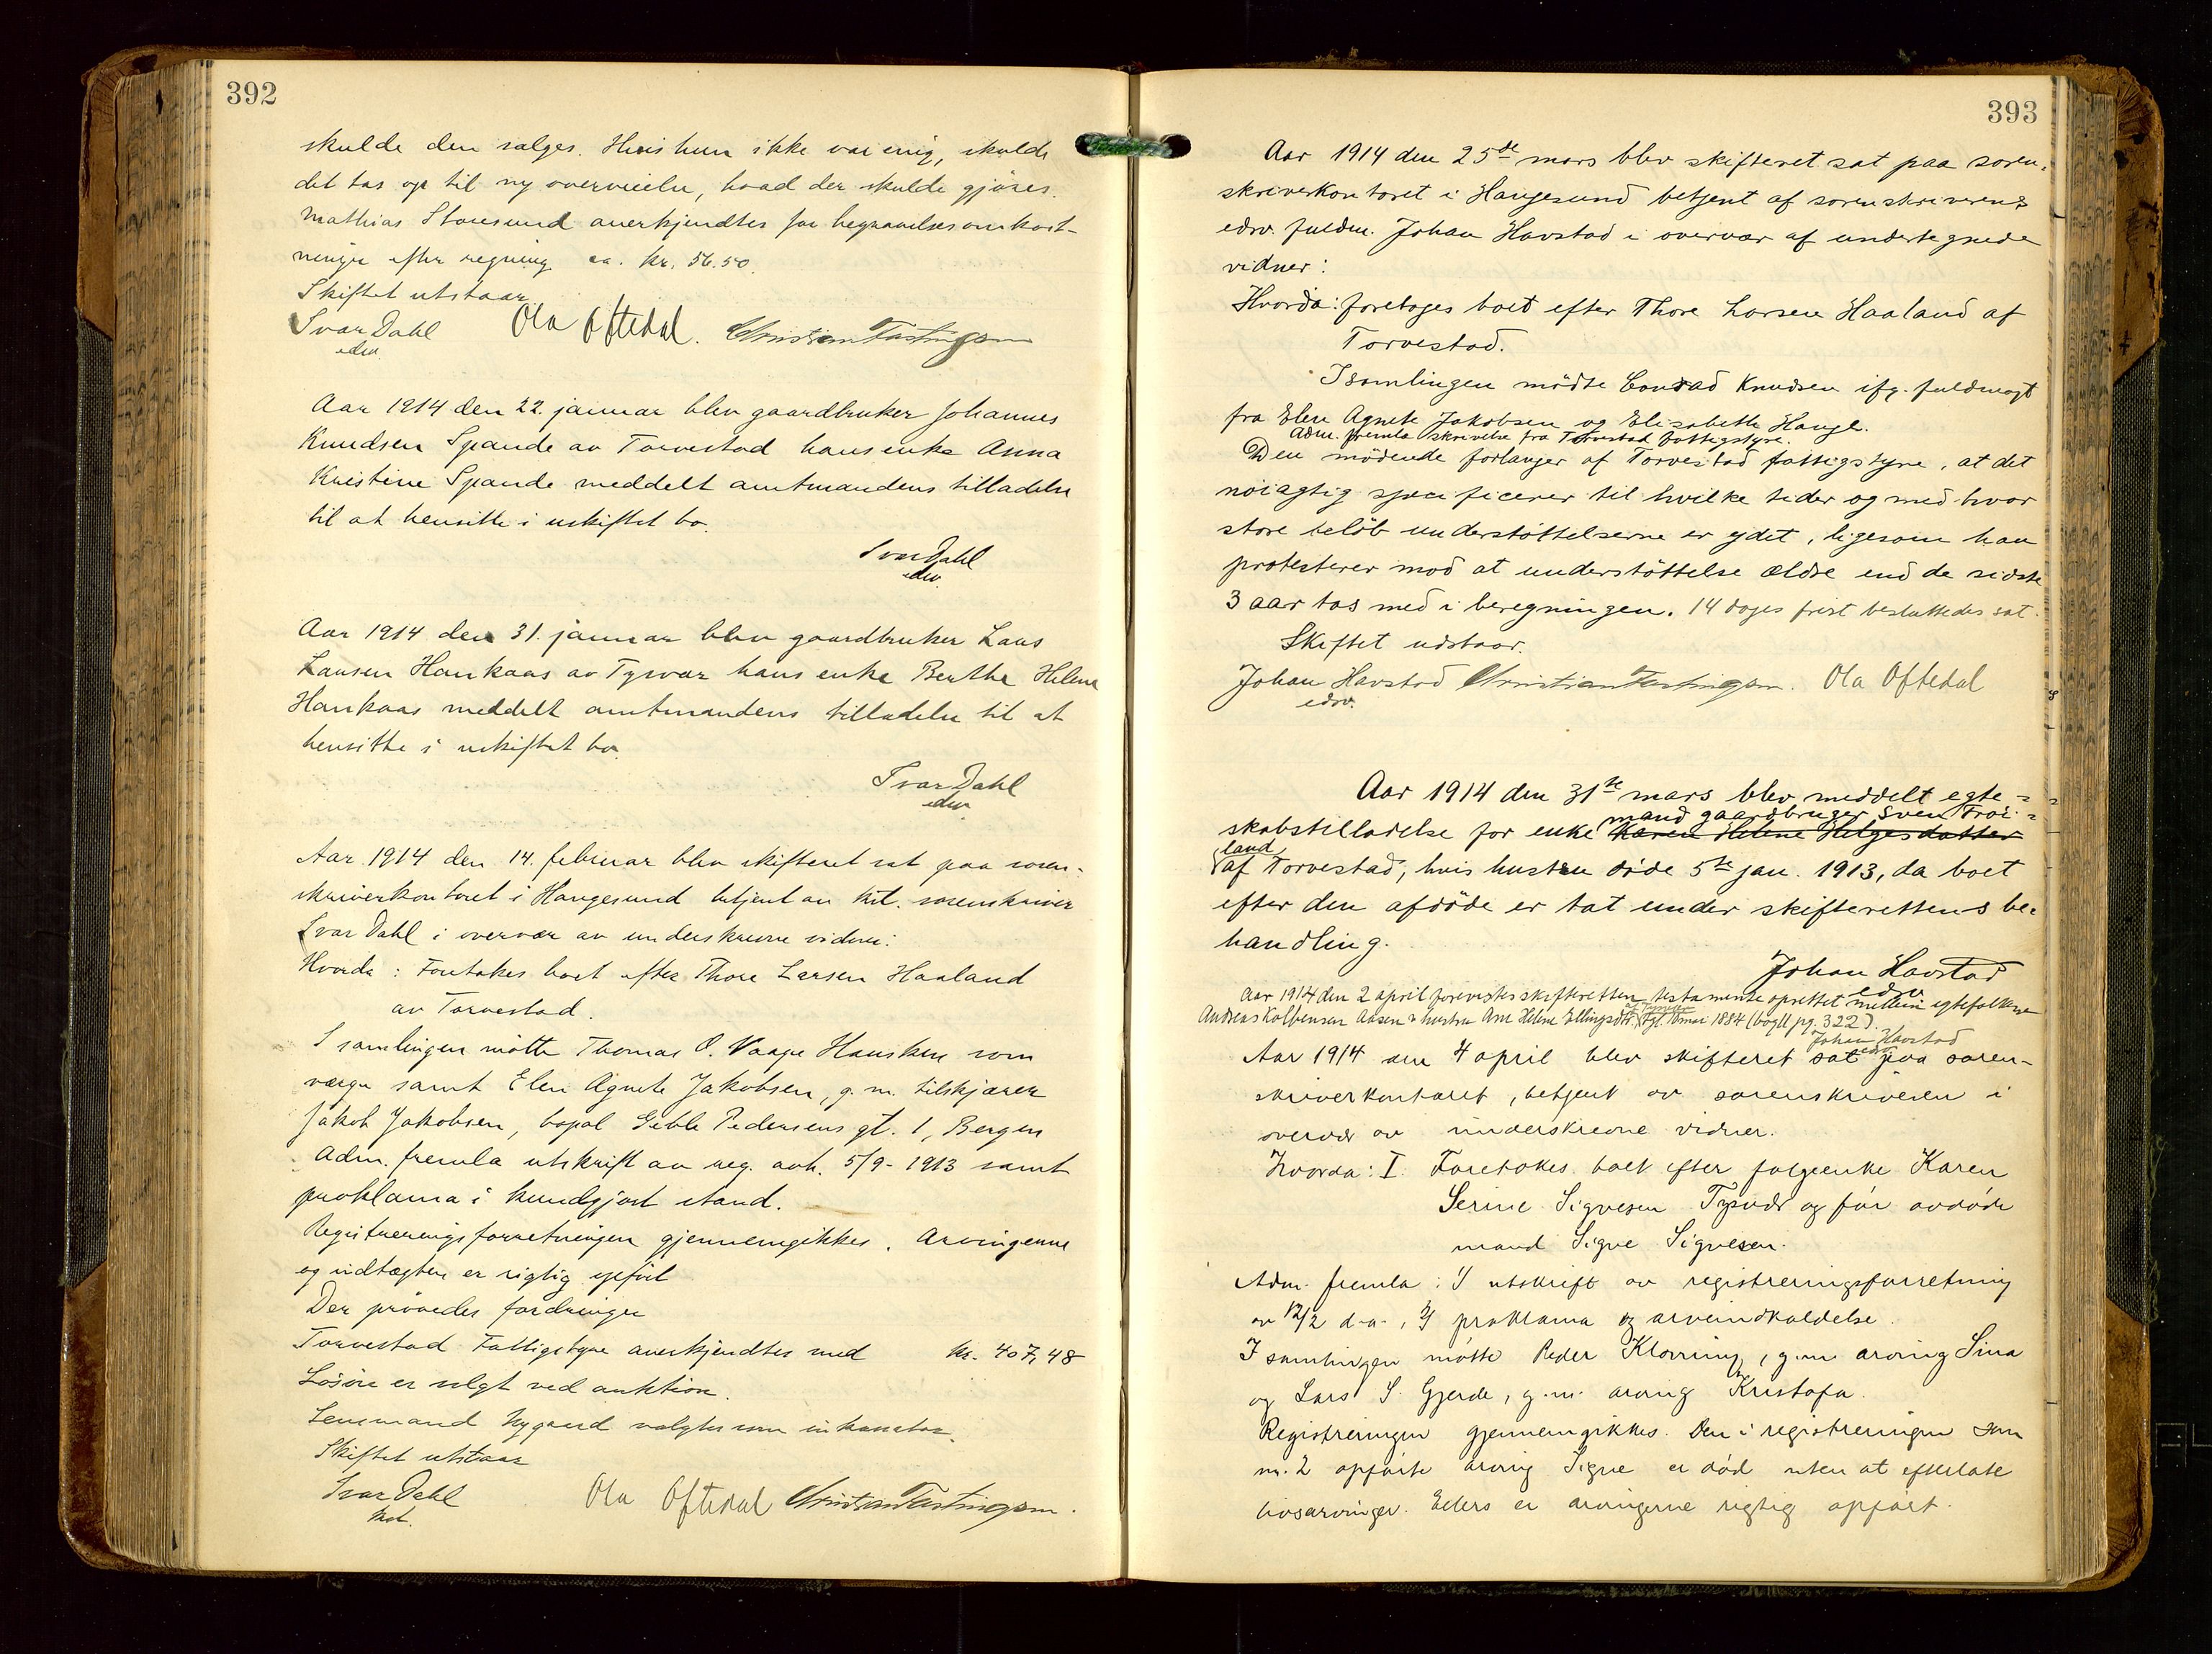 392
skulde den sælges. Hvis hun ikke var enig, skulde
det tas op til ny overveielse, hvad der skulde gjöres.
Mathias Storesund anerkjendtes for begravelsesomkost-
ninger efter regning ca. kr. 56.50.
Skiftet utstaar
Ivar Dahl Ola Oftedal. Christian Fastingsen
edsv.
Aar 1914 den 22. januar blev gaardbruker Johannes
Knudsen Spande av Torvestad hans enke Anna
Kristine Spande meddelt amtmandens tilladelse
til at hensitte i uskiftet bo.
Ivar Dahl
edsv.
Aar 1914 den 31. januar blev gaardbruker Lars
Larsen Haukaas av Tysvær hans enke Berthe Helene
Haukaas meddelt amtmandens tilladelse til at
hensitte i uskiftet bo.
Ivar Dahl
edsv
Aar 1914 den 14. februar blev skifteret sat paa soren-
skriverkontoret i Haugesund betjent av kst. sorenskriver
Ivar Dahl i overvær av underskrevne vidner:
Hvorda: Foretokes boet efter Thore Larsen Haaland
av Torvestad.
I samlingen mötte Thomas O. Vaage Hausken som
værge samt Elen Agnete Jakobsen, g. m. tilskjærer
Jakob Jakobsen, bopæl Geble Pedersens gt. 1, Bergen
Adm. fremla utskrift av reg. avh. 5/9-1913 samt
proklama i kundgjort stand.
Registreringsforretningen gjennemgikkes. Arvingerne
og indtægten er rigtig opfört
Der prövedes fordringer
Torvestad Fattigstyre anerkjendtes med kr. 407,48
Lösöre er solgt ved auktion.
Lensmand Nygaard valgtes som inkassator.
Skiftet utstaar
Ivar Dahl Ola Oftedal Christian Fastingsen.
kst.
393
Aar 1914 den 25de mars blev skifteret sat paa soren-
skriverkontoret i Haugesund betjent af sorenskriverens
edsv. fuldm. Johan Havstad i overvær af undertegnede
vidner:
Hvorda: foretoges boet efter Thore Larsen Haaland af
Torvestad.
I samlingen mödte Conrad Knudsen ifg. fuldmagt
fra Elen Agnete Jakobsen og Elisabeth Hauge.
Adm. fremla skrivelse fra Torvestad fattigstyre.
Den mödende forlanger af Torvestad fattigstyre, at det
nöiagtig specificerer til hvilke tider og med hvor
store belöb understöttelserne er ydet, ligesom han
protesterer mod at understöttelse ældre end de sidste
3 aar tas med i beregningen. 14 dages frist besluttedes sat.
Skiftet udstaar.
Johan Havstad Christian Fastingsen. Ola Oftedal
edsv.
Aar 1914 den 31te mars blev meddelt egte-
mand gaardbruger Sven Tröi-
skabstilladelse for enke Karen Helene Helgesdatter
land
af Torvestad, hvis hustru döde 5te jan. 1913, da boet
efter den afdöde er tat under skifterettens be-
handling.
Johan Havstad
edsv
Aar 1914 den 2 april forevistes skifteretten testamente oprettet mellem egtefolkene
Andreas Kolbensen Aasen & hustru Ane Helene Ellingsdtr. af Tysvær tgl. 10 mai 1884 (bog 11 pg. 322).
Johan Havstad
edsv
Aar 1914 den 4 april blev skifteret sat paa soren-
skriverkontoret, betjent av sorenskriveren i
overvær av underskrevne vidner.
Hvorda: I. Foretokes boet efter folgeenke Karen
Serine Sigvesen Tysvær og för avdöde
mand Sigve Sigvesen.
Adm. fremla: 1/ utskrift av registreringsforretning
av 12/2 d.a., 2/ proklama og arveindkaldelse.
I samlingen mötte Peder Klovning, g.m. arving Sina
og Lars S. Gjerde, g.m. arving Kristofa.
Registreringen gjennemgikkes. Den i registreringen som
nr. 2 opförte arving Sigve er död uten at efterlate
livsarvinger. Ellers er arvingerne rigtig opfört.